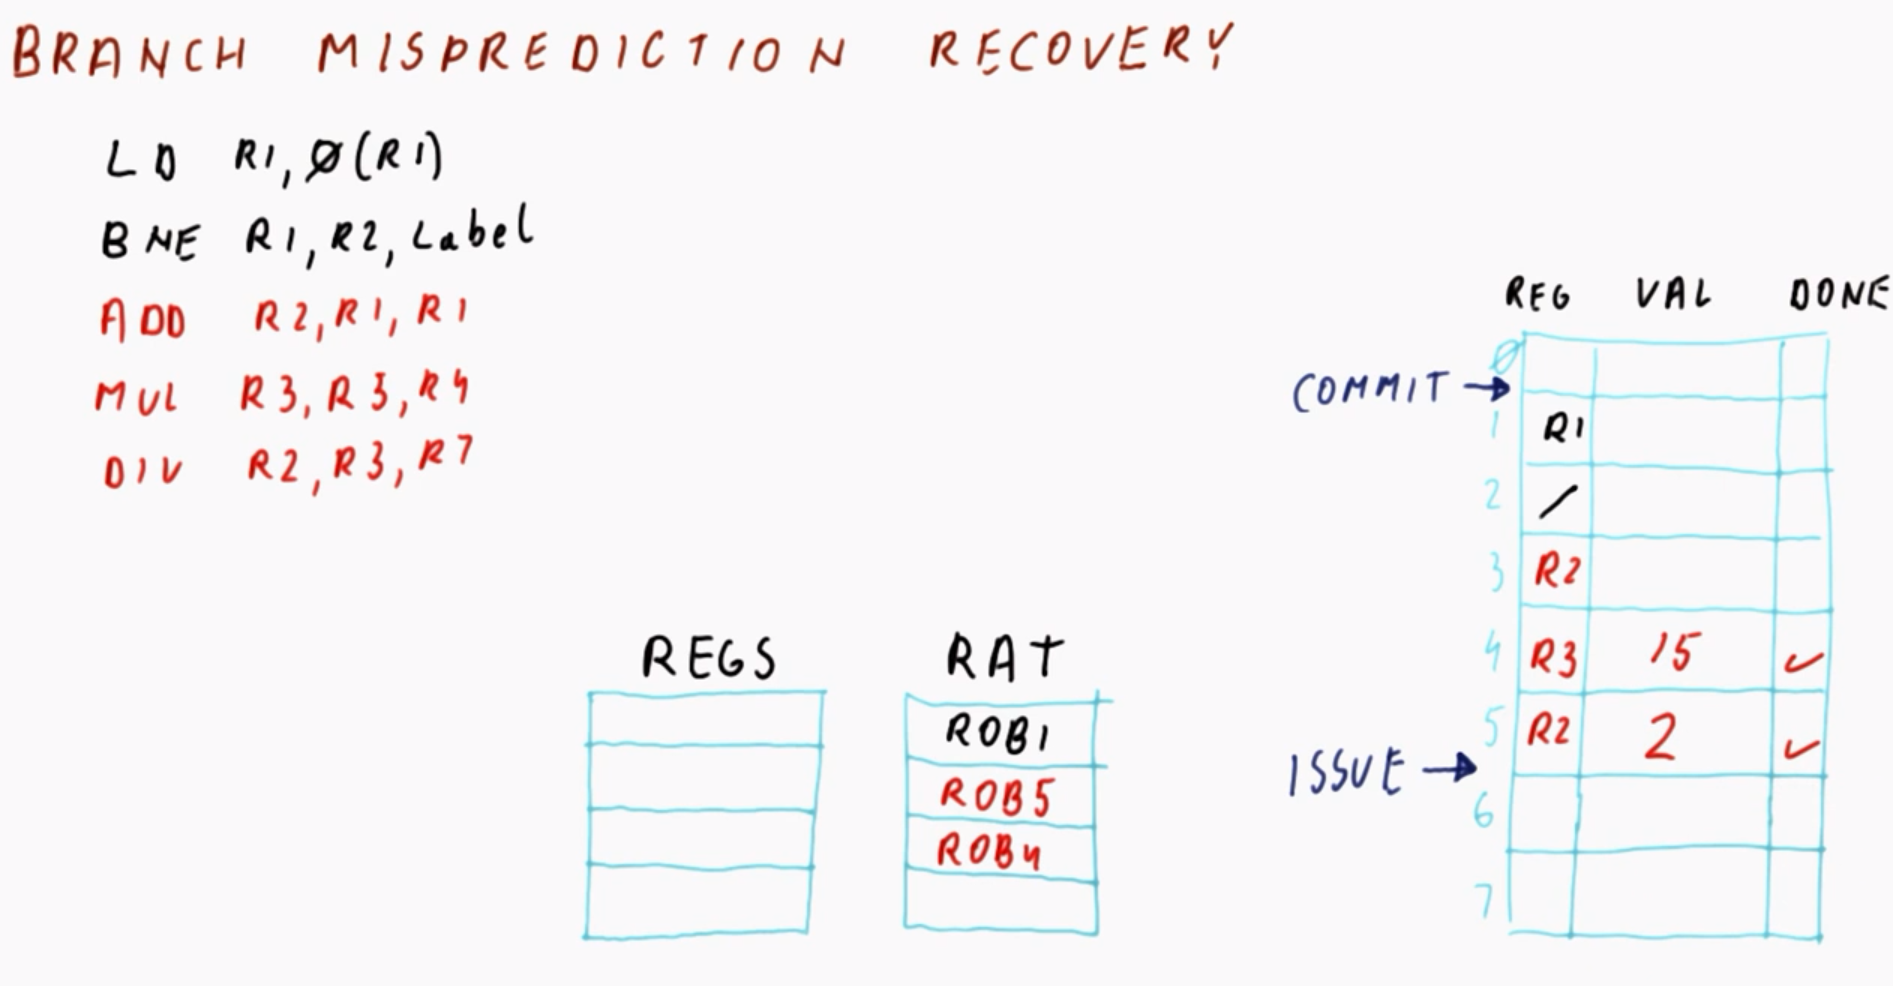 BRANCH MISPREDICTION RECOVERY
LD R1, Ø(R1)
BNE R1, R2, Label
ADD R2, R1, R1
MUL R3, R3, R4
DIV R2, R3, R7
REGS
RAT
ROB1
ROB5
ROB4
REG VAL DONE
Ø
COMMIT →
1 R1
2 /
3 R2
4 R3 15 ✓
5 R2 2 ✓
ISSUE →
6
7